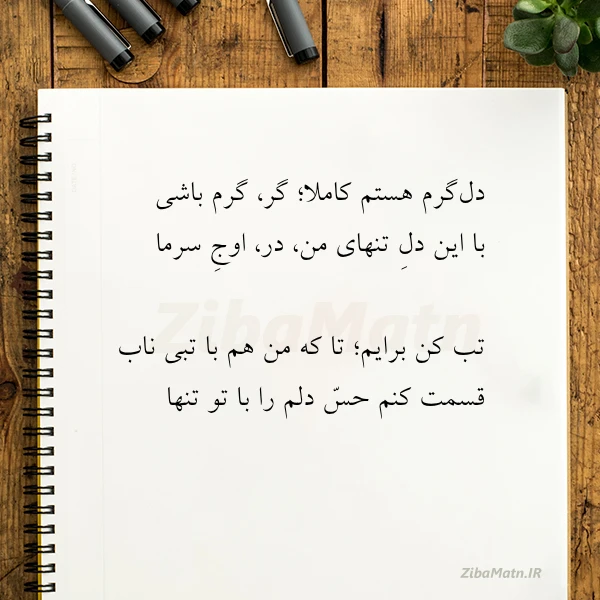 دل‌گرم هستم کاملا؛ گر، گرم باشی
با این دلِ تنهای من، در، اوجِ سرما
ZibaMatn
تب کن برایم؛ تا که من هم با تبی ناب
قسمت کنم حسّ دلم را با تو تنها
ZibaMatn.IR